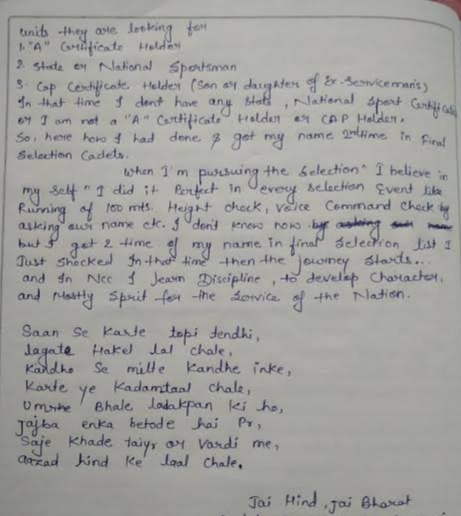 units they are looking for
1. "A" Certificate Holder
2. State or National Sportsman
3. Cap Certificate Holder (Son or daughter of Ex-Serviceman's)
In that time I dont have any State, National Sport Certificate
or I am not a "A" Certificate Holder or CAP Holder.
So, here how I had done & got my name 2nd time in Final
Selection Cadets.
When I'm pursuing the Selection "I believe in
my self" I did it Perfect in every selection Event like
Running of 100 mts. Height check, Voice Command Check by
asking our name etc. I don't know how by asking our name
but I got 2 time of my name in final Selection list I
Just Shocked In that time then the journey Starts...
and In Ncc I learn Discipline, to develop Character,
and Mostly Sprit for the Service of the Nation.
Saan Se Karte topi tendhi,
lagate Hakel lal chale,
Kandho Se milte Kandhe inke,
Karte ye Kadamtaal chale,
Umrhe Bhale ladakpan Ki ho,
Jajba enka betode hai Pr,
Saje Khade taiyr or Vardi me,
aazad hind Ke laal Chale.
Jai Hind, Jai Bharat